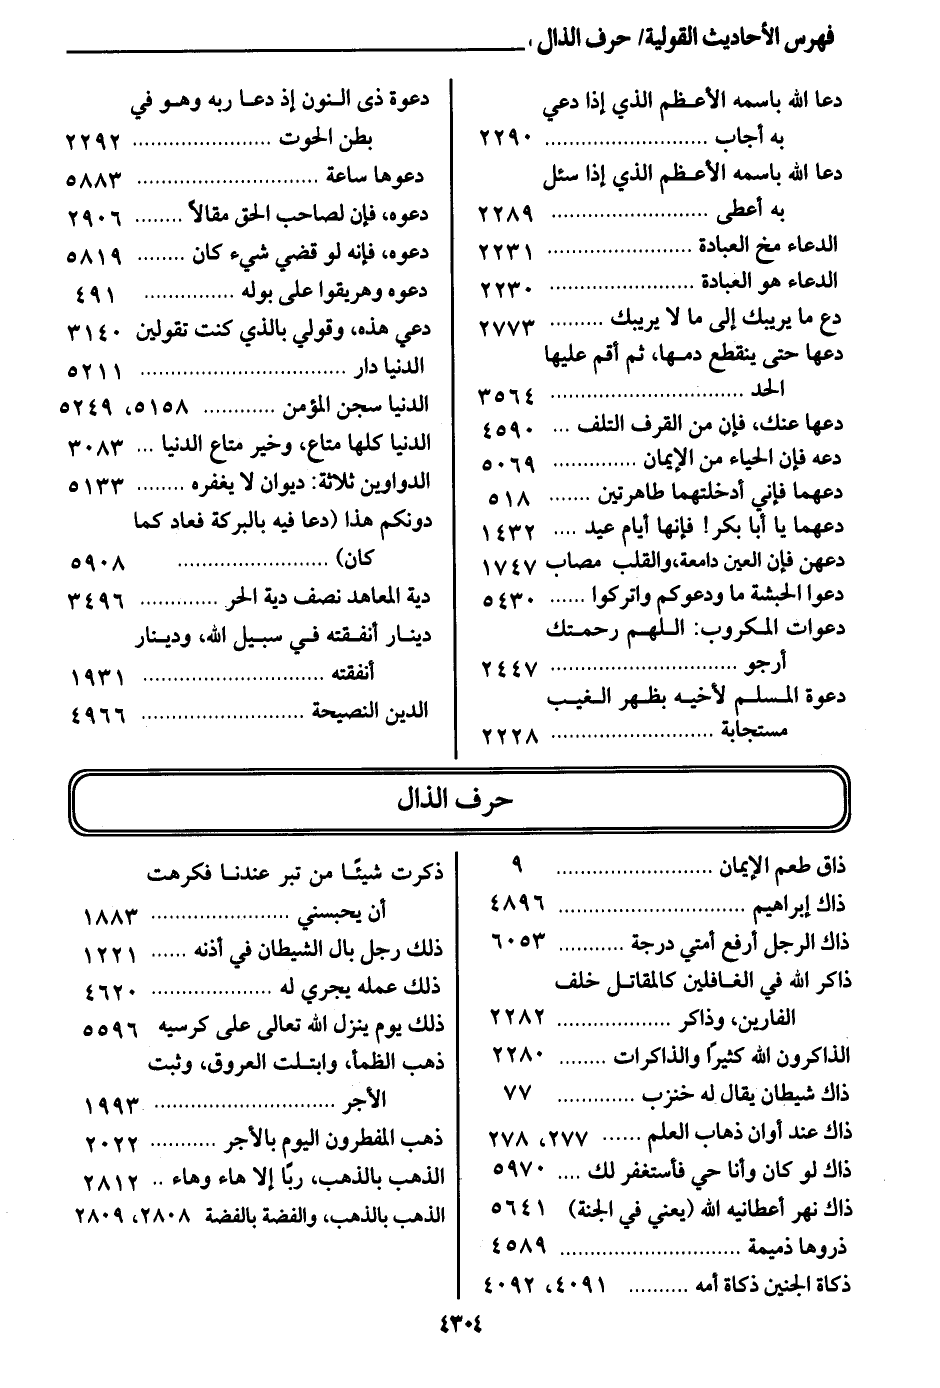 فهرس الأحاديث القولية/ حرف الذال
دعا الله باسمه الأعـظم الذي إذا دعي
به أجاب ........................... ٢٢٩٠
دعا الله باسمه الأعـظم الذي إذا سئل
به أعطى .......................... ٢٢٨٩
الدعاء مخ العبادة ........................ ٢٢٣١
الدعاء هو العبادة ........................ ٢٢٣٠
دع ما يريبك إلى ما لا يريبك ......... ٢٧٧٣
دعها حتى ينقطع دمـها، ثم أقم عليها
الحد ................................ ٣٥٦٤
دعها عنك، فإن من القرف التلف ... ٤٥٩٠
دعه فإن الحياء من الإيمان .............. ٥٠٦٩
دعهما فإني أدخلتهما طاهرتين ....... ٥١٨
دعهما يا أبا بكر! فإنها أيام عيد .... ١٤٣٢
دعهن فإن العين دامعة،والقلب مصاب ١٧٤٧
دعوا الحبشة ما ودعوكم واتركوا ...... ٥٤٣٠
دعوات المـكروب: اللـهم رحمـتك
أرجو ............................... ٢٤٤٧
دعوة المـسلـم لأخيـه بظهر الـغيـب
مستجابة ........................... ٢٢٢٨
دعوة ذى النون إذ دعـا ربه وهـو في
بطن الحوت ....................... ٢٢٩٢
دعوها ساعة .............................. ٥٨٨٣
دعوه، فإن لصاحب الحق مقالاً ........ ٢٩٠٦
دعوه، فإنه لو قضي شيء كان ........ ٥٨١٩
دعوه وهريقوا على بوله ............... ٤٩١
دعي هذه، وقولي بالذي كنت تقولين ٣١٤٠
الدنيا دار .................................. ٥٢١١
الدنيا سجن المؤمن ............ ٥١٥٨، ٥٢٤٩
الدنيا كلها متاع، وخير متاع الدنيا ... ٣٠٨٣
الدواوين ثلاثة: ديوان لا يغفره ........ ٥١٣٣
دونكم هذا (دعا فيه بالبركة فعاد كما
كان) ......................... ٥٩٠٨
دية المعاهد نصف دية الحر ............. ٣٤٩٦
دينـار أنفـقته فـي سبـيل الله، ودينـار
أنفقته .............................. ١٩٣١
الدين النصيحة ........................... ٤٩٦٦
حرف الذال
ذاق طعم الإيمان .......................... ٩
ذاك إبراهيم ............................... ٤٨٩٦
ذاك الرجل أرفع أمتي درجة ........... ٦٠٥٣
ذاكر الله في الغـافلين كالمقاتـل خلف
الفارين، وذاكر ................... ٢٢٨٢
الذاكرون الله كثيرًا والذاكرات ........ ٢٢٨٠
ذاك شيطان يقال له خنزب ............. ٧٧
ذاك عند أوان ذهاب العلم ...... ٢٧٧، ٢٧٨
ذاك لو كان وأنا حي فأستغفر لك .... ٥٩٧٠
ذاك نهر أعطانيه الله (يعني في الجنة) ٥٦٤١
ذروها ذميمة .............................. ٤٥٨٩
ذكاة الجنين ذكاة أمه .......... ٤٠٩١، ٤٠٩٢
ذكرت شيئًـا من تبر عندنـا فكرهت
أن يحبسني ....................... ١٨٨٣
ذلك رجل بال الشيطان في أذنه ...... ١٢٢١
ذلك عمله يجري له .................... ٤٦٢٠
ذلك يوم ينزل الله تعالى على كرسيه ٥٥٩٦
ذهب الظمأ، وابتـلت العروق، وثبت
الأجر .............................. ١٩٩٣
ذهب المفطرون اليوم بالأجر ........... ٢٠٢٢
الذهب بالذهب، ربًا إلا هاء وهاء .. ٢٨١٢
الذهب بالذهب، والفضة بالفضة ٢٨٠٨، ٢٨٠٩
٤٣٠٤